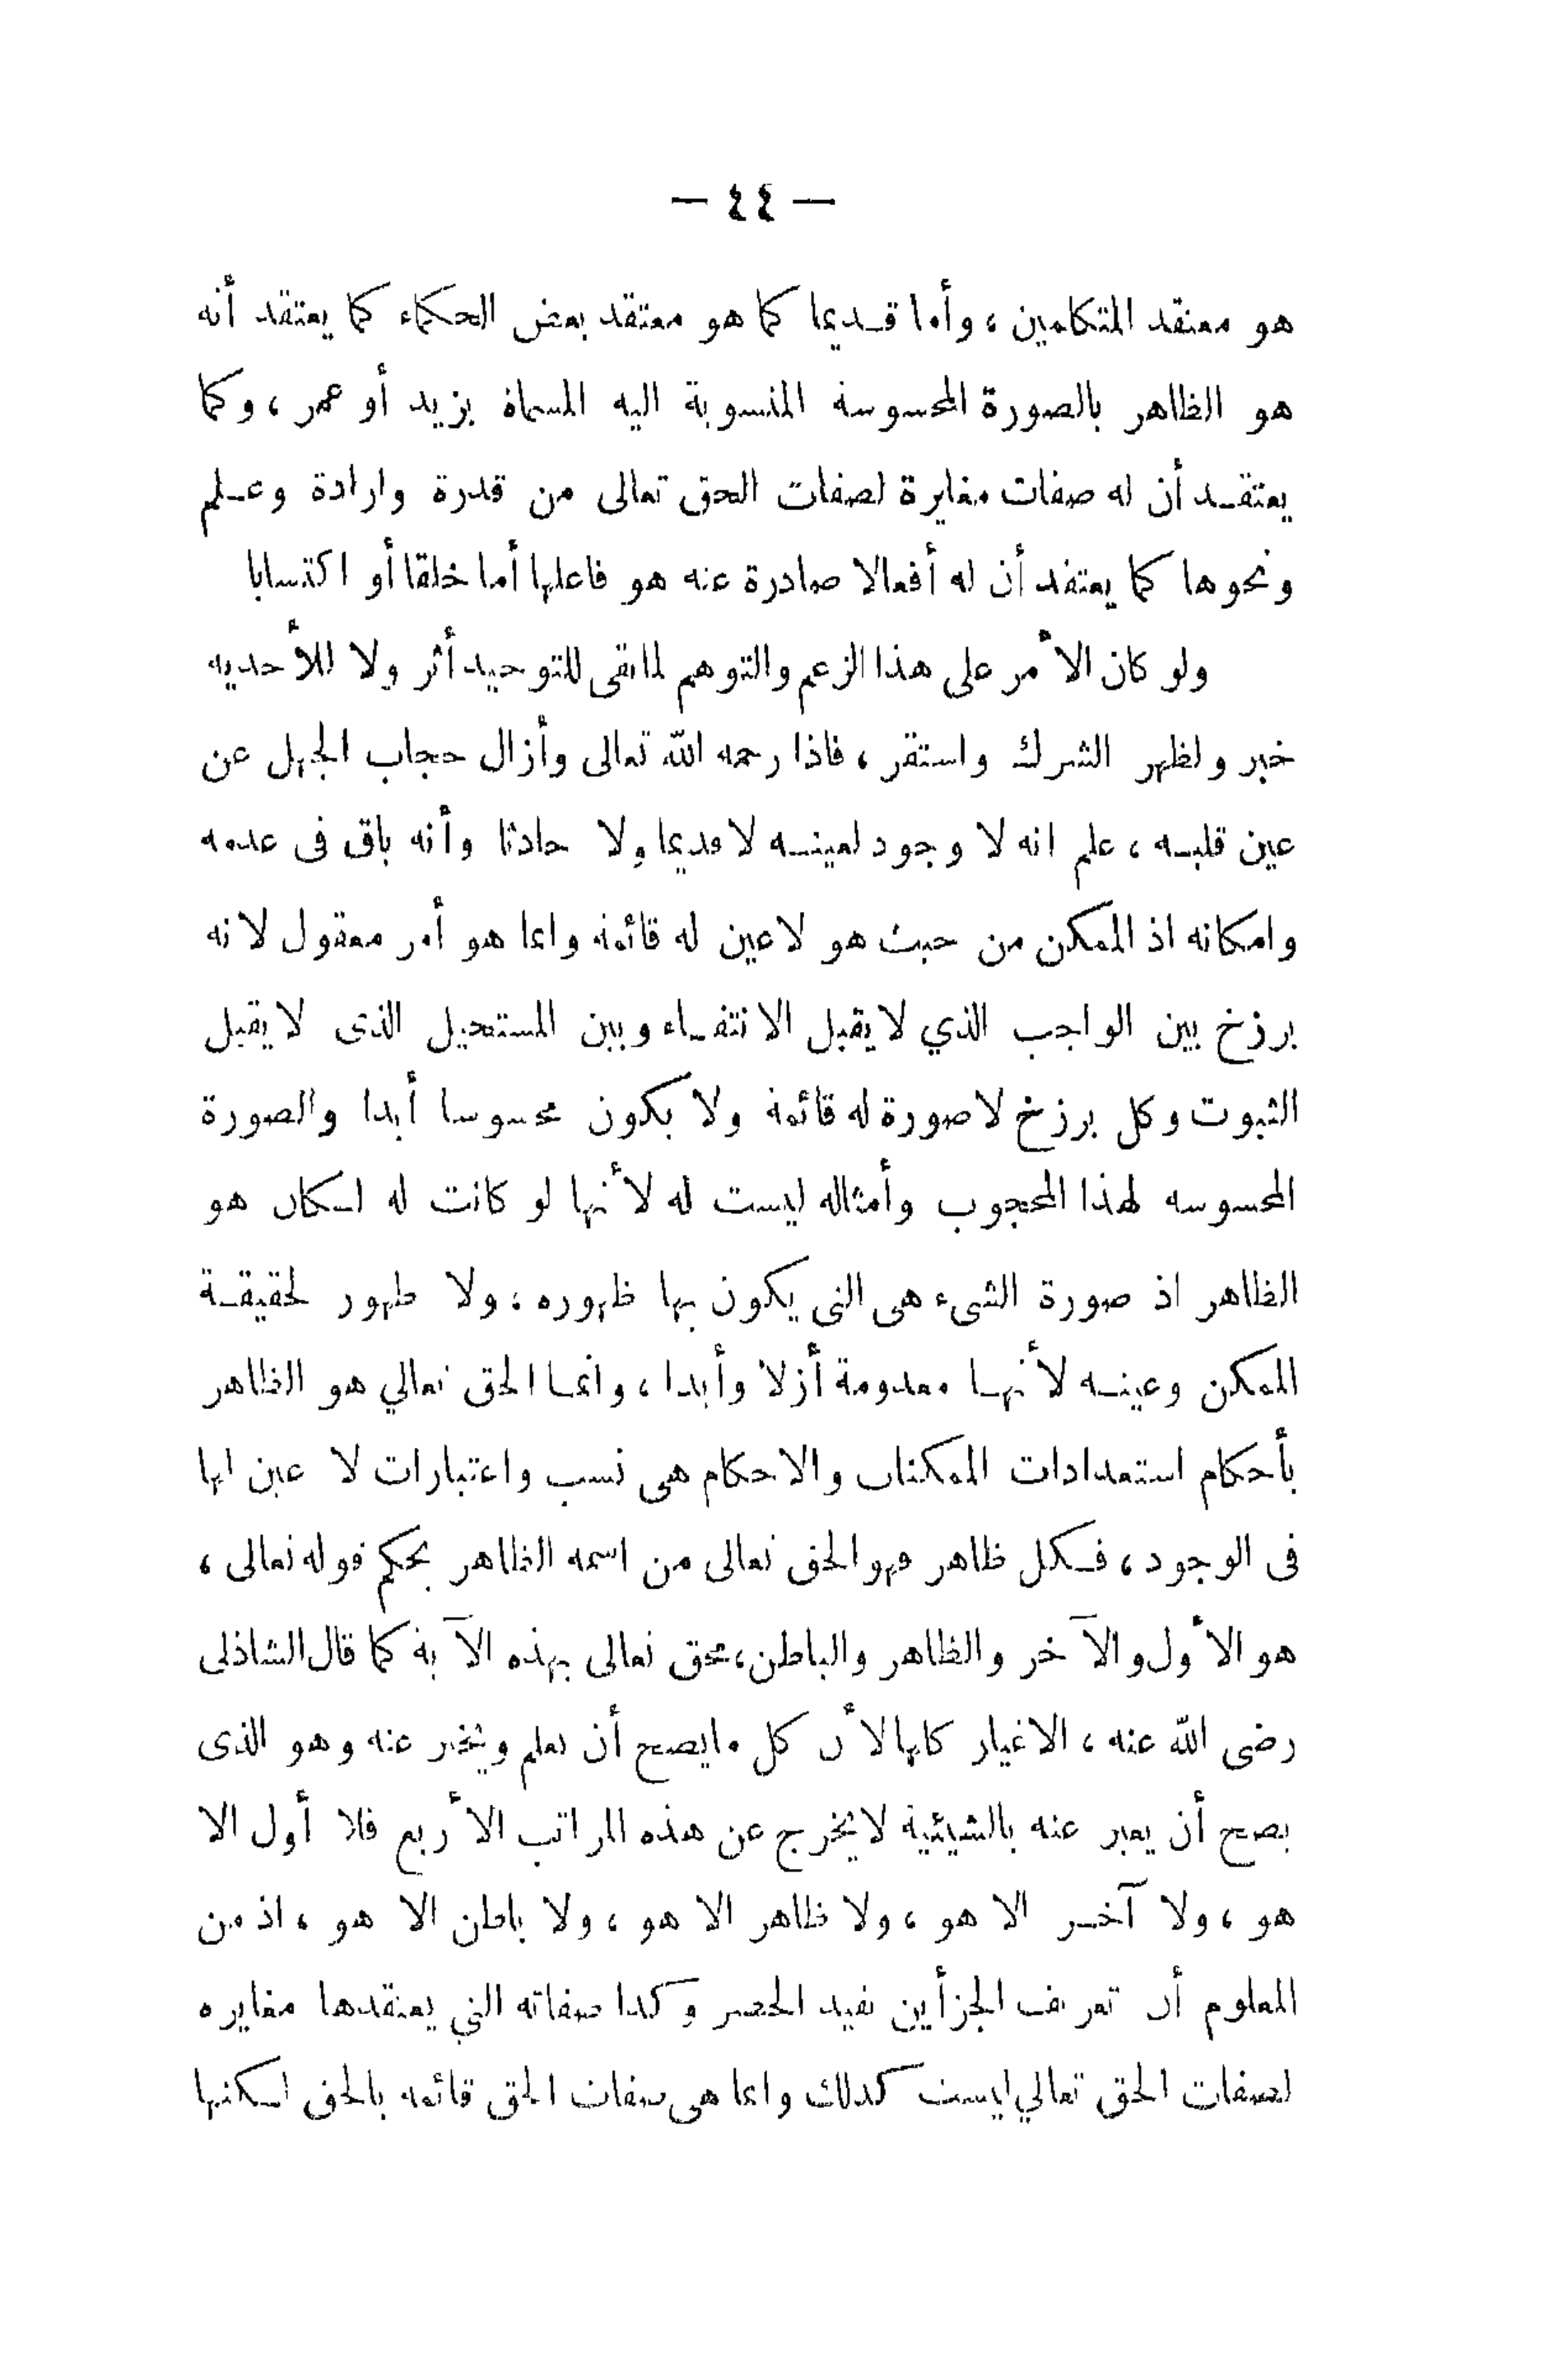 — ٤٤ —
هو معتقد المتكلمين ، وأما قديما كما هو معتقد بعض الحكماء كما يعتقد أنه
هو الظاهر بالصورة المحسوسة المنسوبة اليه المسماة بزيد أو عمر ، وكما
يعتقد أن له صفات مغايرة لصفات الحق تعالى من قدرة وارادة وعلم
ونحوها كما يعتقد أن له أفعالا صادرة عنه هو فاعلها أما خلقا أو اكتسابا
ولو كان الأمر على هذا الزعم والتوهم لما بقى للتوحيد أثر ولا للأحديه
خبر ولظهر الشرك واستقر ، فاذا رحمه الله تعالى وأزال حجاب الجهل عن
عين قلبه ، علم انه لا وجود لعينه لا قديما ولا حادثا وأنه باق فى عدمه
وامكانه اذ الممكن من حيث هو لا عين له قائمة وانما هو أمر معقول لانه
برزخ بين الواجب الذي لا يقبل الانتفاء وبين المستحيل الذى لا يقبل
الثبوت وكل برزخ لا صورة له قائمة ولا يكون محسوسا أبدا والصورة
المحسوسه لهذا المحجوب وأمثاله ليست له لأنها لو كانت له لكان هو
الظاهر اذ صورة الشىء هى التى يكون بها ظهوره ، ولا ظهور لحقيقة
الممكن وعينه لأنها معدومة أزلا وأبدا ، وانما الحق تعالي هو الظاهر
بأحكام استعدادات الممكنات والاحكام هى نسب واعتبارات لا عين لها
فى الوجود ، فكل ظاهر فهو الحق تعالى من اسمه الظاهر بحكم قوله تعالى ،
هو الأول والآخر والظاهر والباطن ، محق تعالى بهذه الآية كما قال الشاذلى
رضى الله عنه ، الاغيار كلها لأن كل ما يصح أن يعلم ويخبر عنه وهو الذى
يصح أن يعبر عنه بالشيئية لا يخرج عن هذه المراتب الأربع فلا أول الا
هو ، ولا آخر الا هو ، ولا ظاهر الا هو ، ولا باطن الا هو ، اذ من
المعلوم أن تعريف الجزأين يفيد الحصر وكذا صفاته التي يعتقدها مغايره
لصفات الحق تعالي ليست كذلك وانما هى صفات الحق قائمه بالحق لكنها